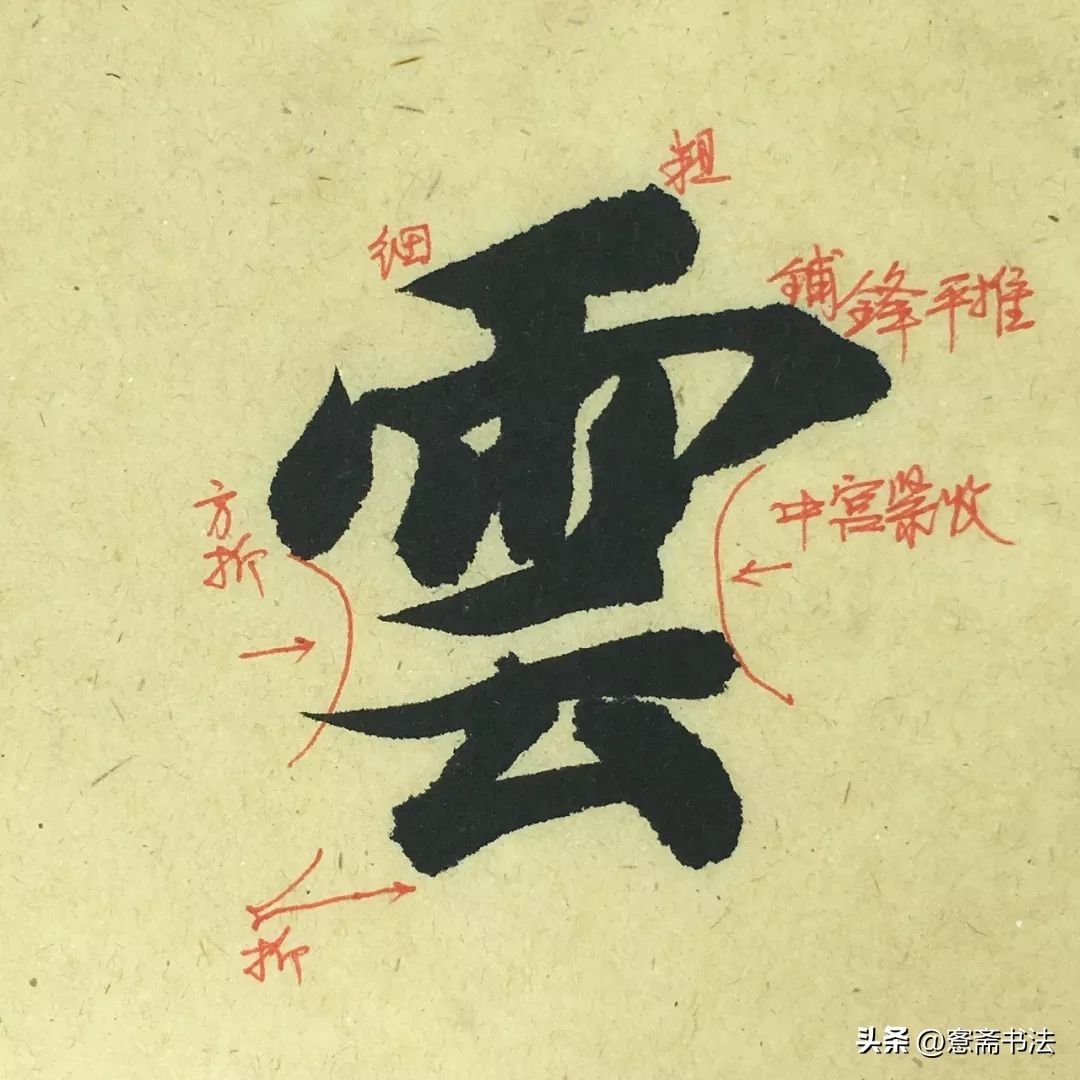 粗
细
雲
鋪鋒平推
方折
中宫紧收
折
头条 @愙斋书法